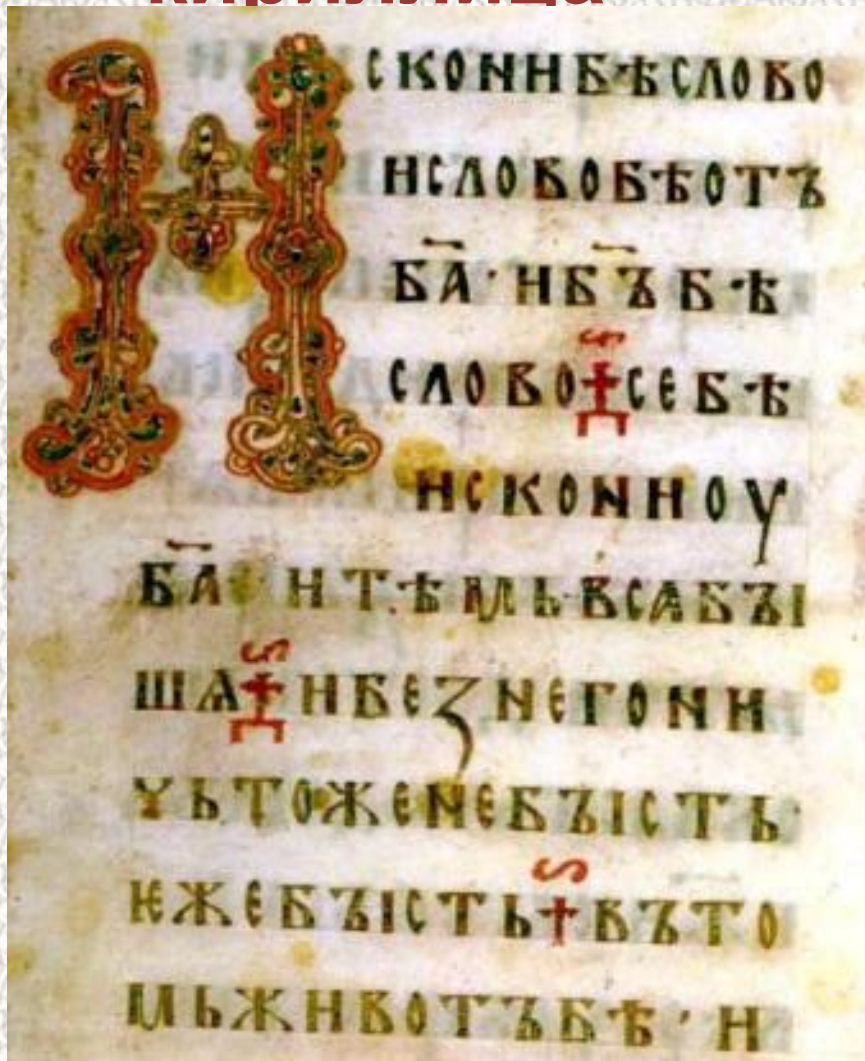 кириллица
Искони бѣ слово
и слово бѣ отъ
б҃а· и б҃ъ бѣ
слово се бѣ
искони оу
б҃а и тѣмь вса бꙑ
шѧ и без него ни
чьтоже не бꙑсть·
ѥже бꙑсть въ то
мь животъ бѣ· и